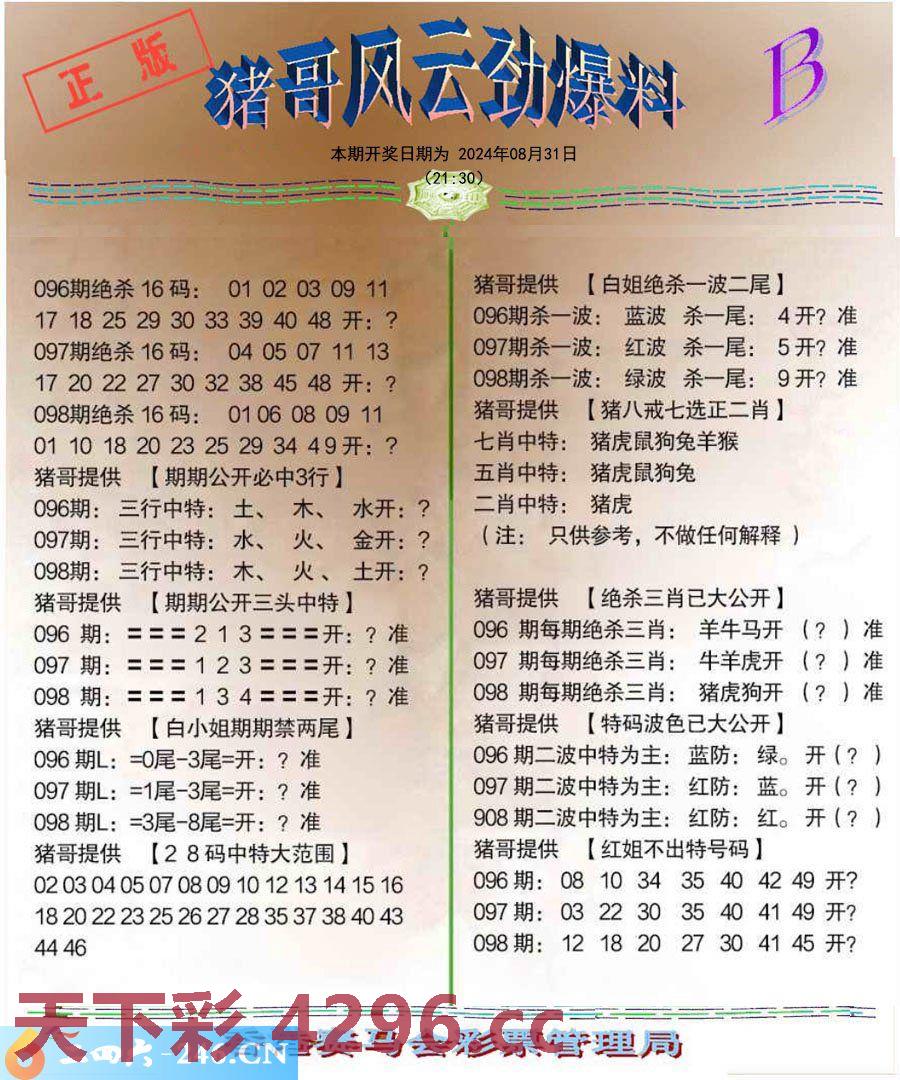 正版
猪哥风云劲爆料
B
本期开奖日期为 2024年08月31日
(21:30)
096期绝杀16码： 01 02 03 09 11
17 18 25 29 30 33 39 40 48 开：?
097期绝杀16码： 04 05 07 11 13
17 20 22 27 30 32 38 45 48 开：?
098期绝杀16码： 01 06 08 09 11
01 10 18 20 23 25 29 34 49开：?
猪哥提供 【期期公开必中3行】
096期： 三行中特： 土、 木、 水开：?
097期： 三行中特： 水、 火、 金开：?
098期： 三行中特： 木、 火、 土开：?
猪哥提供 【期期公开三头中特】
096 期：=== 2 1 3 ===开：? 准
097 期：=== 1 2 3 ===开：? 准
098 期：=== 1 3 4 ===开：? 准
猪哥提供 【白小姐期期禁两尾】
096期L：=0尾-3尾=开：? 准
097期L：=1尾-3尾=开：? 准
098期L：=3尾-8尾=开：? 准
猪哥提供 【２８码中特大范围】
02 03 04 05 07 08 09 10 12 13 14 15 16
18 20 22 23 25 26 27 28 35 37 38 40 43
44 46
猪哥提供 【白姐绝杀一波二尾】
096期杀一波： 蓝波 杀一尾： 4开? 准
097期杀一波： 红波 杀一尾： 5开? 准
098期杀一波： 绿波 杀一尾： 9开? 准
猪哥提供 【猪八戒七选正二肖】
七肖中特： 猪虎鼠狗兔羊猴
五肖中特： 猪虎鼠狗兔
二肖中特： 猪虎
（注： 只供参考，不做任何解释 ）
猪哥提供 【绝杀三肖已大公开】
096 期每期绝杀三肖： 羊牛马开 （? ）准
097 期每期绝杀三肖： 牛羊虎开 （? ）准
098 期每期绝杀三肖： 猪虎狗开 （? ）准
猪哥提供 【特码波色已大公开】
096期二波中特为主： 蓝防： 绿。 开（? ）
097期二波中特为主： 红防： 蓝。 开（? ）
908期二波中特为主： 红防： 红。 开（? ）
猪哥提供 【红姐不出特号码】
096期： 08 10 34 35 40 42 49 开?
097期： 03 22 30 35 40 41 49 开?
098期： 12 18 20 27 30 41 45 开?
天下彩 4296.cc
二四六-246.CN
马会彩票管理局